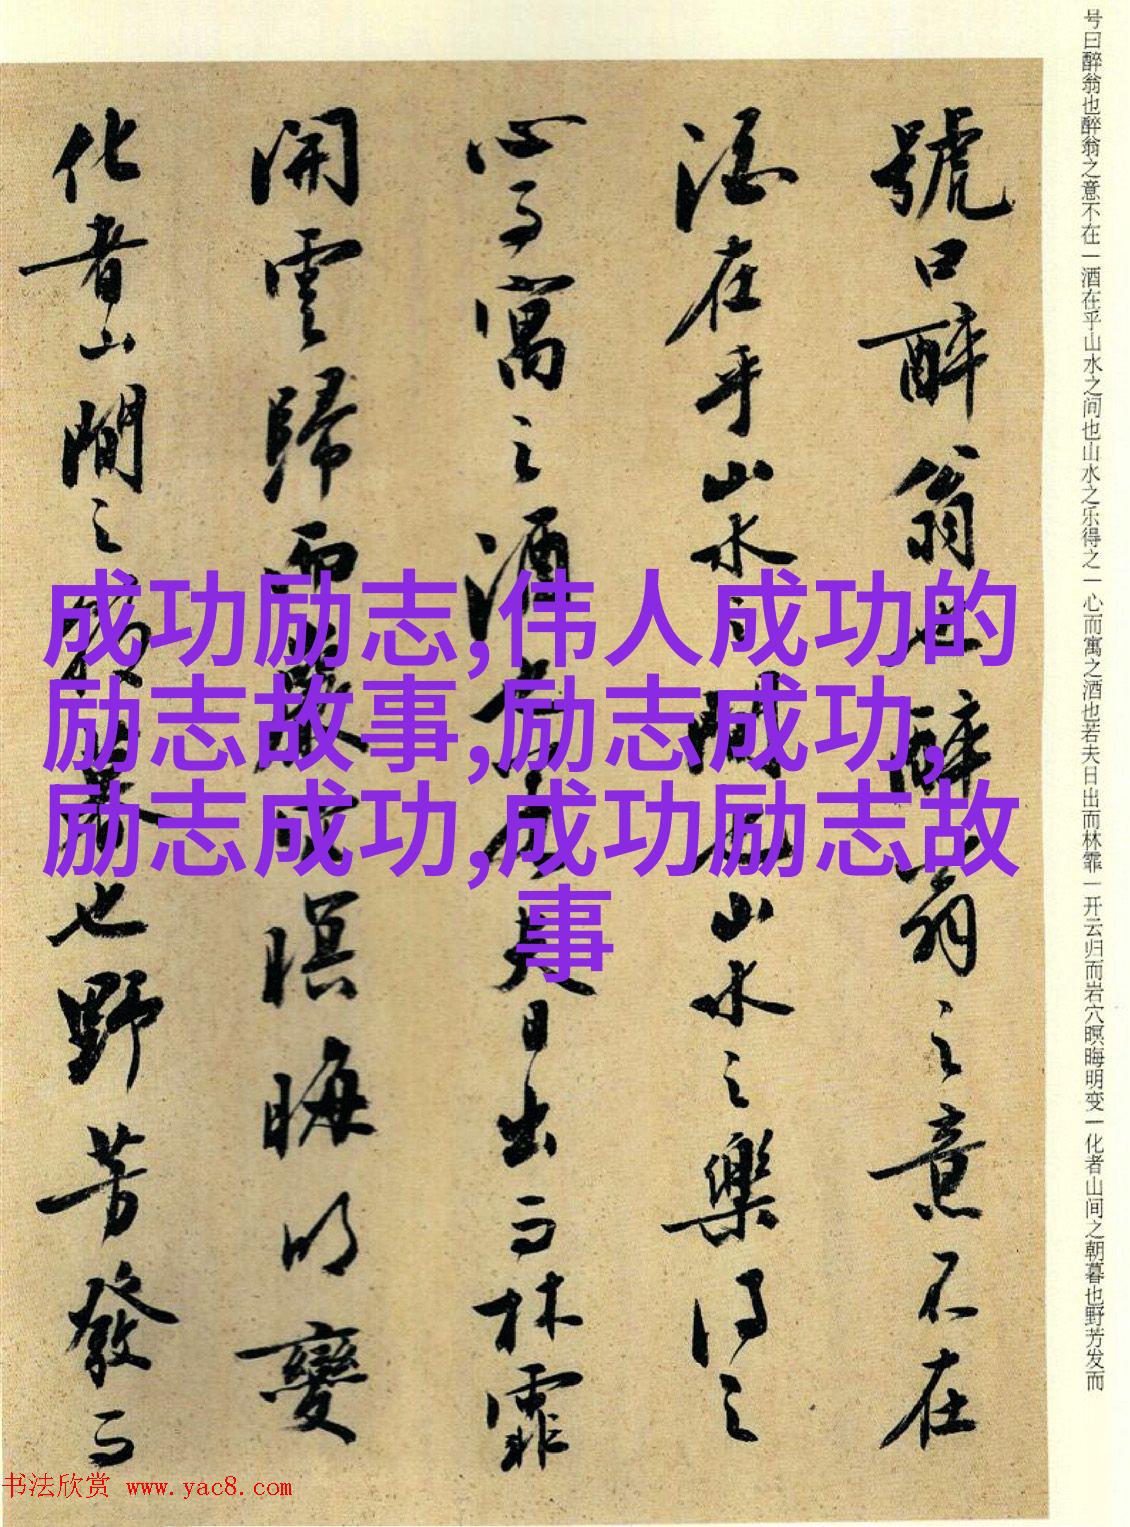 號曰醉翁也醉翁之意不在
酒在乎山水之間也山水之樂得之
心而寓之酒也若夫日出而林霏
開雲歸而巖穴暝晦明變
化者山間之朝暮也野芳發而
号曰醉翁也醉翁之意不在一酒在乎山水之间也山水之乐得之一心而寓之酒也若夫日出而林霏一开云归而岩穴暝晦明变一化者山间之朝暮也野芳发而
成功励志,伟人成功的
励志故事,励志成功,
励志成功,成功励志故
事
书法欣赏 www.yac8.com